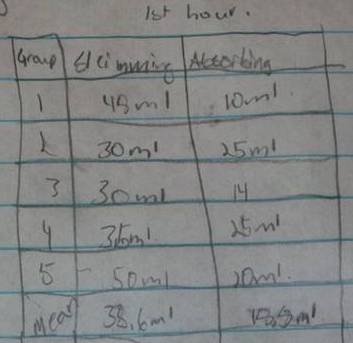 1st hour.
Group Skimming Absorbing
1 48ml 10ml.
2 30ml 25ml
3 30ml 14
4 35ml 25ml
5 50ml 20ml.
Mean 38.6ml 18.8ml